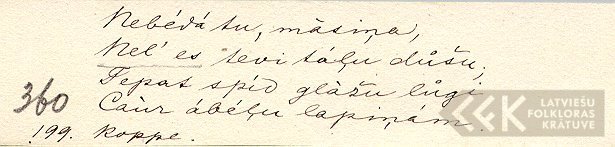 Nebēdā tu, māsiņa,
Nel' es tevi tāļu dūšu;
Tepat spīd glāžu lūgi
Caùr ābēļu lapiņām.
360
199. Koppe.
LATVIEŠU
FOLKLORAS
KRĀTUVE